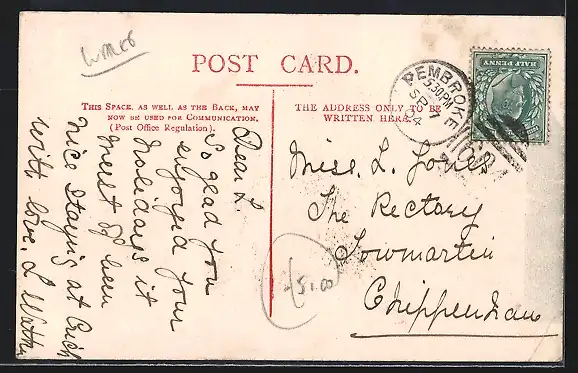 POST CARD.
THIS SPACE, AS WELL AS THE BACK, MAY
NOW BE USED FOR COMMUNICATION.
(Post Office Regulation).
THE ADDRESS ONLY TO BE
WRITTEN HERE.
HALF PENNY
PEMBROKE
5.30PM
SP 7
Dear L.
So glad you
enjoyed your
holidays it
must of been
nice staying at
with love, L
Miss. L. Jones
The Rectory
Chippenham
51.00